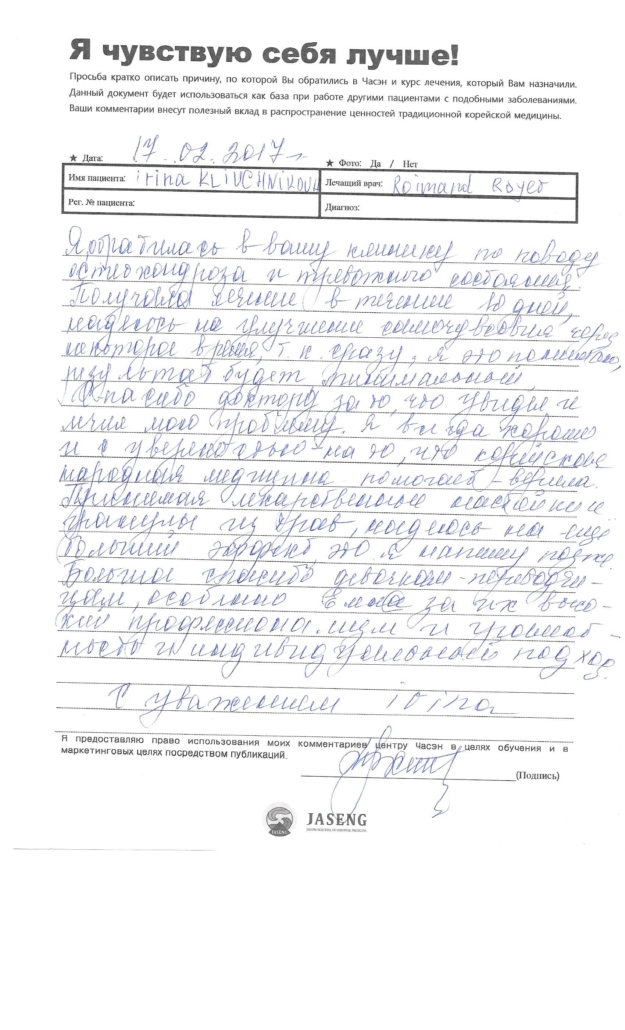 Я чувствую себя лучше!
Просьба кратко описать причину, по которой Вы обратились в Часэн и курс лечения, который Вам назначили.
Данный документ будет использоваться как база при работе другими пациентами с подобными заболеваниями.
Ваши комментарии внесут полезный вклад в распространение ценностей традиционной корейской медицины.
★ Дата: 17.02.2017г ★ Фото: Да / Нет
Имя пациента: irina KLIUCHNIKOVA Лечащий врач: Raimand Royer
Рег. № пациента: Диагноз:
Я обратилась в вашу клинику по поводу
остеохондроза и тревожного состояния.
Получала лечение в течение 10 дней,
надеюсь на улучшение самочувствия через
некоторое время, т.к. сразу, я это понимаю,
результат будет минимальный.
Спасибо доктору за то, что увидел и
мою проблему. Я всегда хорошо
и с уверенностью на то, что корейская
народная медицина помогает - верила.
Принимая лекарственные настойки и
гранулы из трав, надеюсь на ещё
больший эффект это я напишу позже.
Большое спасибо девочкам-перевод
чицам, особенно за их высо-
кий профессионализм и
и индивидуальный подход.
С уважением irina
Я предоставляю право использования моих комментариев центру Часэн в целях обучения и в
маркетинговых целях посредством публикаций.
(Подпись)
JASENG
JASENG